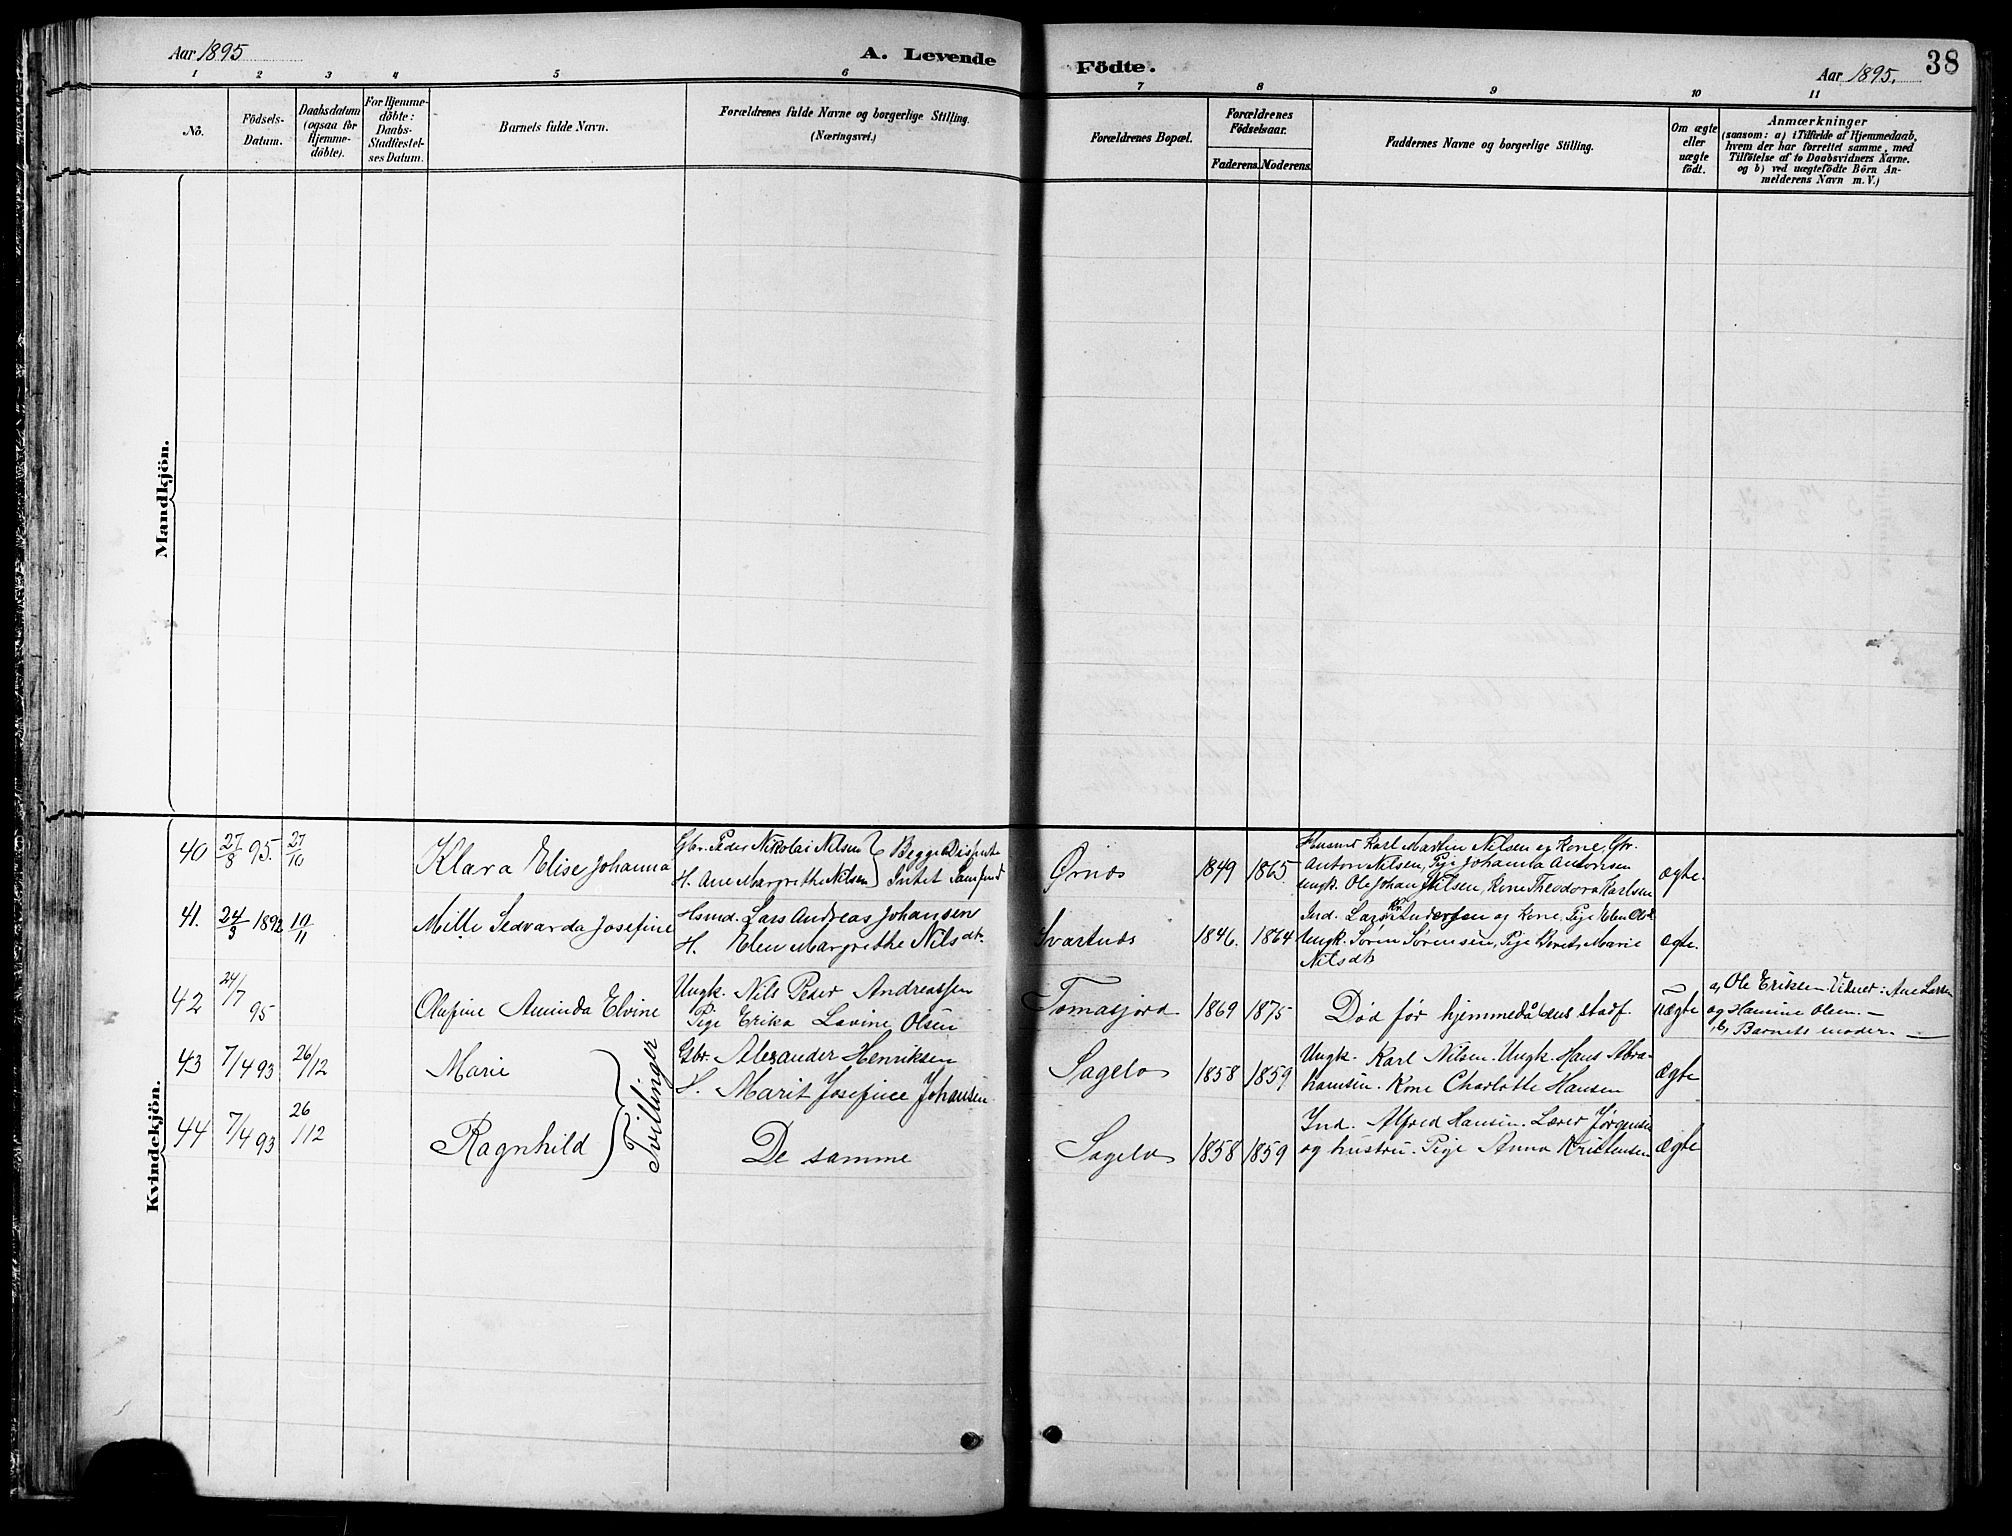 Aar 1895
A. Levende
Födte.
Aar 1895.
38
1 2 3 4 5 6 7 8 9 10 11
No.
Födsels-
Datum.
Daabsdatum
(ogsaa for
Hjemme-
döbte).
For Hjemme-
döbte:
Daabs-
Stadfæstel-
ses Datum.
Barnets fulde Navn.
Forældrenes fulde Navne og borgerlige Stilling.
(Næringsvei.)
Forældrenes Bopæl.
Forældrenes
Födselsaar.
Faderens. Moderens.
Faddernes Navne og borgerlige Stilling.
Om ægte
eller
uægte
födt.
Anmærkninger
(saasom: a) i Tilfælde af Hjemmedaab,
hvem der har forrettet samme, med
Tilföielse af to Daabsvidners Navne.
og b) ved uægtefödte Börn An-
melderens Navn m. V.)
Mandkjön.
Kvindekjön.
40 27/8 95. 27/10 Klara Elise Johanna
Gbr. Peder Nikolai Nilsen } Begge Disfente
H. Ane Margrethe Nilsen } Intet Samfund
Ørnes 1849 1865
Husmd Karl Martin Nilsen og Kone, Gbr.
Anton Nilsen, Pige Johanna Antonsen
Ungk. Ole Johan Nilsen, Kone Theodora Karlsen
ægte.
41. 24/3 1892 10/11 Mille Sedvarda Josefine
Hsmd. Lars Andreas Johansen
H. Elen Margrethe Nilsdt.
Svartnes 1846. 1864
Ind. Lars Andersen og Kone, Pige Elen
Ungk. Søren Sørensen, Pige Beret Marie
Nilsdt
ægte.
42 24/7 95 Olefine Aminda Elvine
Ungk. Nils Peder Andreassen
Pige Erika Lovine Olsen
Tomasjord 1869 1875
Død før hjemmedåbens stadf.
uægte
a, Ole Eriksen. Vidner: Ane Larsen
og Hanine Olsen. —
b, Barnets moder. —
43 7/4 93 26/12 Marie
Gbr. Alexander Henriksen
H. Marit Josefine Johansen
Sagelv 1858 1859
Ungk. Karl Nilsen. Ungk. Hans Abra-
hamsen. Kone Charlotte Hansen
ægte
44 7/4 93 26/12 Ragnhild
Tvillinger
De samme
Sagelv 1858 1859
Ind. Alfred Hansen. Lærer Jørgensen
og hustru. Pige Anna Kristensen
ægte